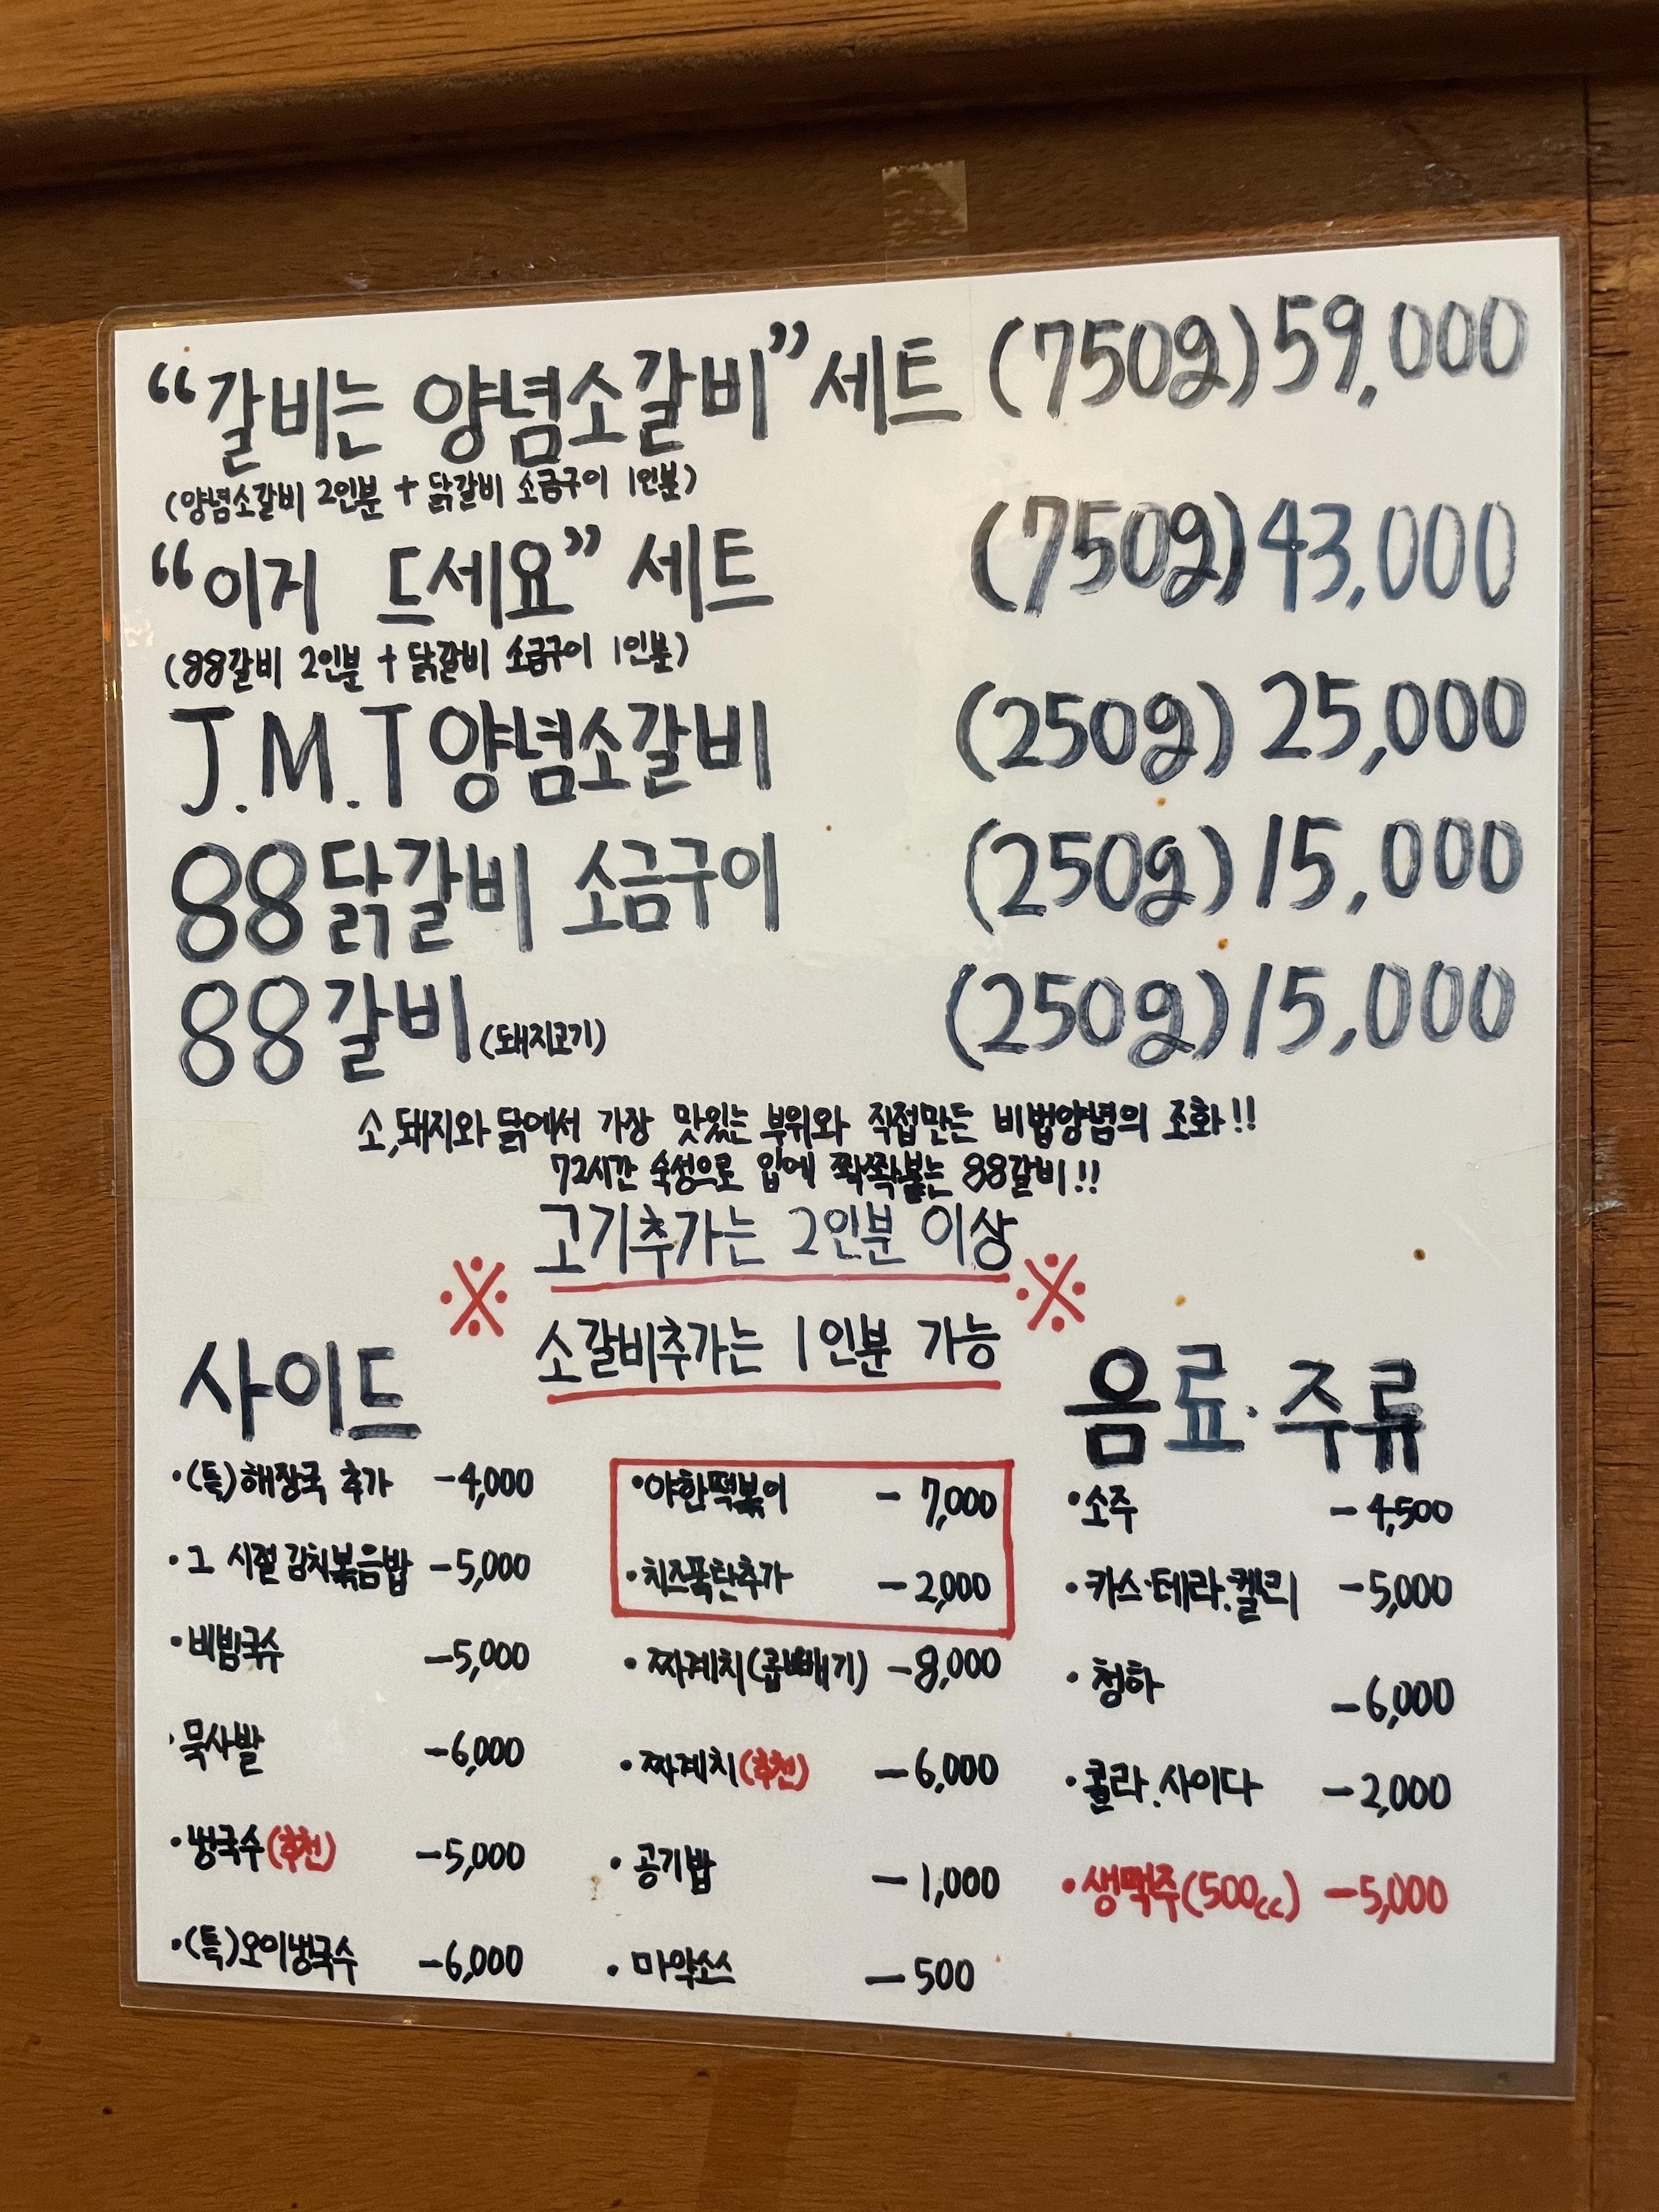 “갈비는 양념소갈비” 세트 (750g) 59,000
(양념소갈비 2인분 + 닭갈비 소금구이 1인분)
“이거 드세요” 세트 (750g) 43,000
(88갈비 2인분 + 닭갈비 소금구이 1인분)
J.M.T 양념소갈비 (250g) 25,000
88닭갈비 소금구이 (250g) 15,000
88갈비 (돼지고기) (250g) 15,000
소,돼지와 닭에서 가장 맛있는 부위와 직접만든 비법양념의 조화!!
72시간 숙성으로 입에 쫙쫙붙는 88갈비!!
※ 고기추가는 2인분 이상 ※
소갈비추가는 1인분 가능
사이드
·(특)해장국 추가 -4,000
·그 시절 김치볶음밥 -5,000
·비빔국수 -5,000
·묵사발 -6,000
·냉국수(추천) -5,000
·(특)오이냉국수 -6,000
·야한떡볶이 - 7,000
·치즈폭탄추가 -2,000
·짜계치(곱빼기) -8,000
·짜계치(추천) -6,000
·공기밥 -1,000
·마약소스 -500
음료·주류
·소주 -4,500
·카스·테라·켈리 -5,000
·청하 -6,000
·콜라.사이다 -2,000
·생맥주(500cc) -5,000